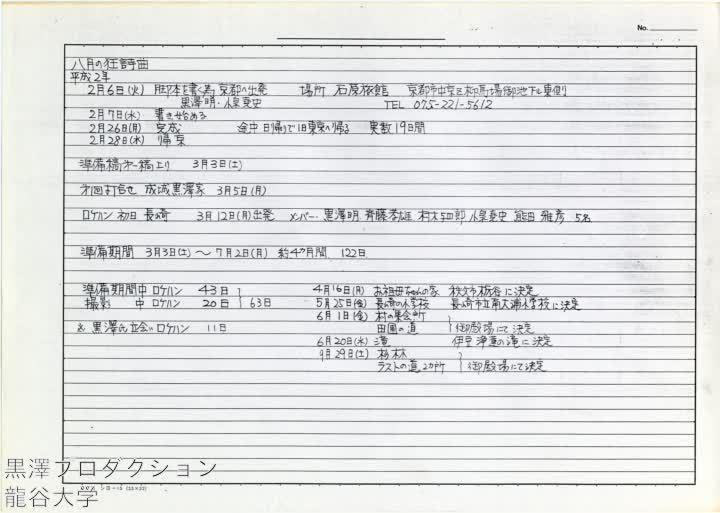 No.
八月の狂詩曲
平成2年
2月6日(火) 脚本を書く為 京都へ出発 場所 石原旅館 京都市中京区柳馬場御池下ル東側
黒澤明・小泉堯史 TEL 075-221-5612
2月7日(水) 書き始める
2月26日(月) 完成 途中日帰りで1日東京へ帰る 実数19日間
2月28日(水) 帰京
準備稿第一稿上り 3月3日(土)
第1回打合せ 成城黒澤家 3月5日(月)
ロケハン初日 長崎 3月12日(月)出発 メンバー・黒澤明 斉藤孝雄 村木与四郎 小泉堯史 熊田雅彦 5名
準備期間 3月3日(土)〜7月2日(月) 約4ヵ月間 122日
準備期間中ロケハン 43日 4月16日(月) お祖母ちゃんの家 秩父市栃谷に決定
撮影 中 ロケハン 20日 63日 5月25日(金) 長崎の小学校 長崎市立南大浦小学校に決定
6月1日(金) 村の集会所
田園の道 御殿場にて決定
& 黒澤氏立会いロケハン 11日
6月20日(水) 滝 伊豆 浄蓮の滝に決定
9月29日(土) 杉林
ラストの道2カ所 御殿場にて決定
黒澤プロダクション
龍谷大学